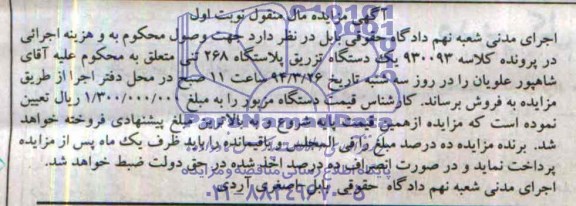 آگهی مزایده مال منقول نوبت اول
اجرای مدنی شعبه نهم دادگاه حقوقی بابل در نظر دارد جهت وصول محکوم به و هزینه اجرائی
در پرونده کلاسه ۹۳۰۰۹۳ یک دستگاه تزریق پلاستگاه ۲۶۸ تنی متعلق به محکوم علیه آقای
شاهپور علویان را در روز سه شنبه تاریخ ۹۴/۳/۲۶ ساعت ۱۱ صبح در محل دفتر اجرا از طریق
مزایده به فروش برساند. کارشناس قیمت دستگاه مزبور را به مبلغ ۱/۳۰۰/۰۰۰/۰۰۰ ریال تعیین
نموده است که مزایده ازهمین قیمت پایه شروع و به بالاترین مبلغ پیشنهادی فروخته خواهد
شد. برنده مزایده ده درصد مبلغ را فی المجلس و باقیمانده را باید ظرف یک ماه پس از مزایده
پرداخت نماید و در صورت انصراف ده درصد اخذ شده در حق دولت ضبط خواهد شد.
پایگاه اطلاع رسانی مناقصه و مزایده
اجرای مدنی شعبه نهم دادگاه حقوقی بابل-اصغری آردی
۰۲۱-۸۸۳۴۹۶۷۰-۵